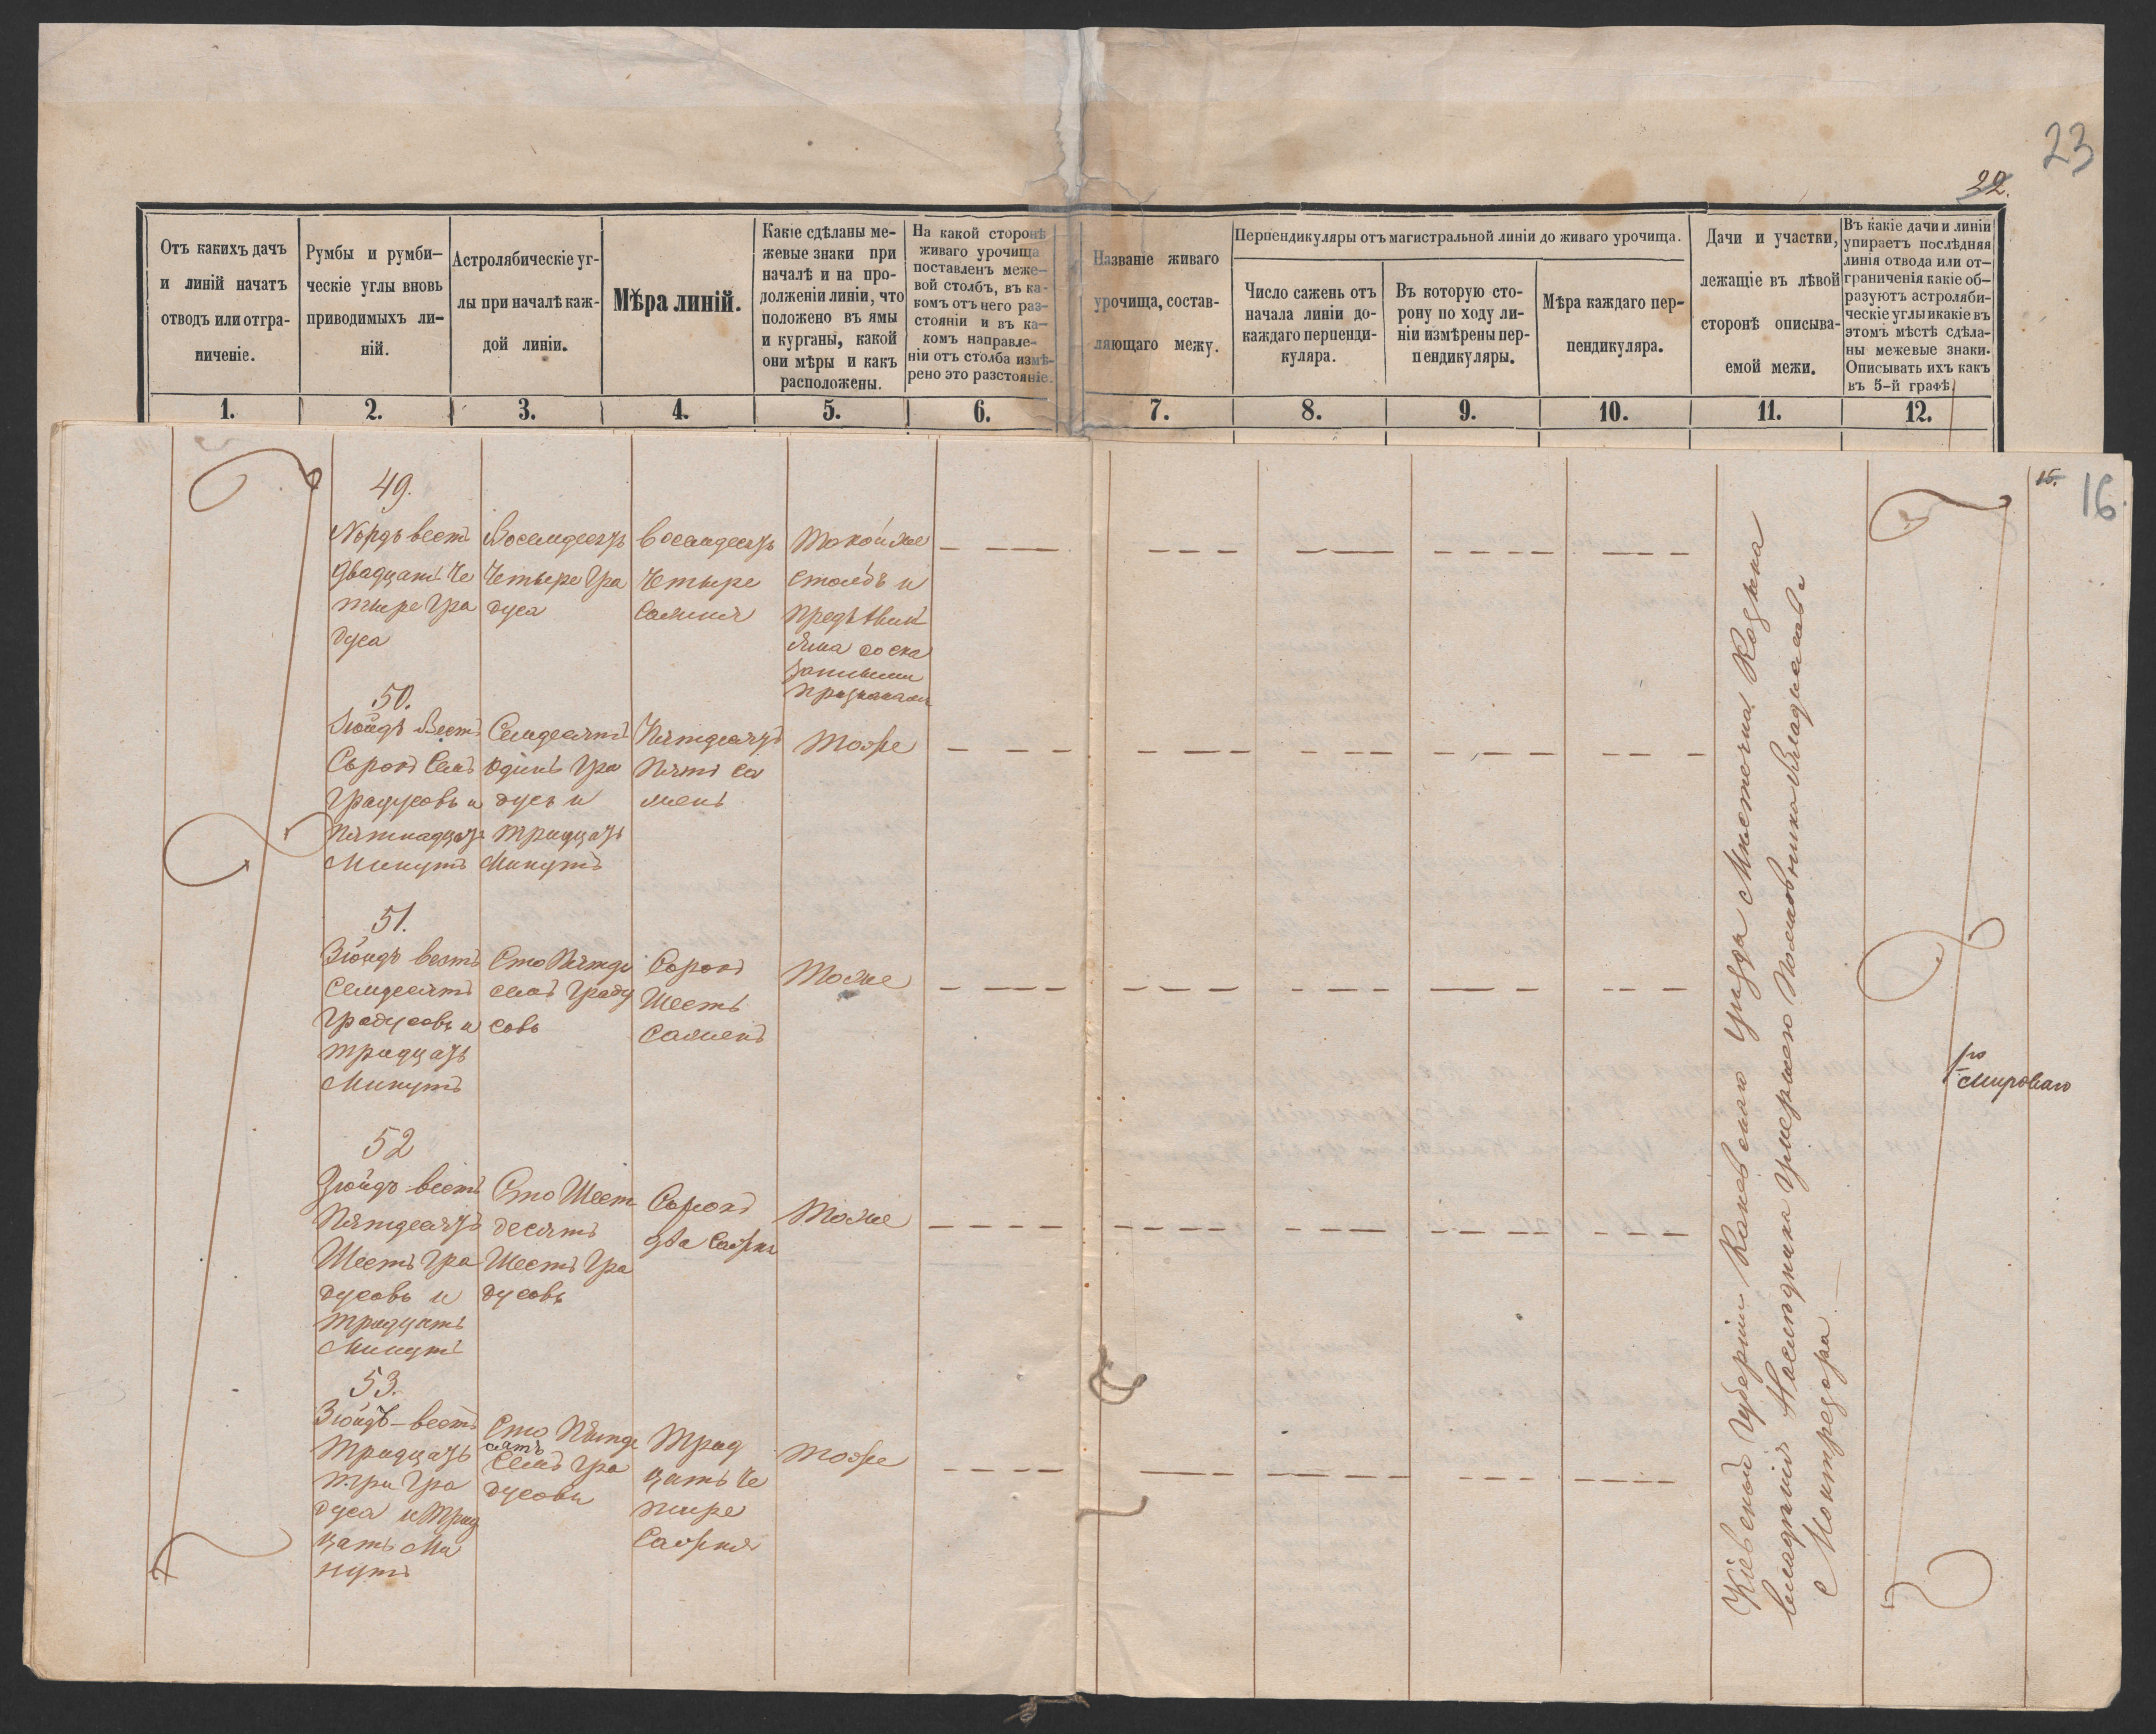 23
22.
Отъ какихъ дачъ
и линій начатъ
отводъ или отгра-
ниченіе.
Румбы и румби-
ческіе углы вновь
приводимыхъ ли-
ній.
Астролябическіе уг-
лы при началѣ каж-
дой линіи.
Мѣра линій.
Какіе сдѣланы ме-
жевые знаки при
началѣ и на про-
долженіи линіи, что
положено въ ямы
и курганы, какой
они мѣры и какъ
расположены.
На какой сторонѣ
живаго урочища
поставленъ меже-
вой столбъ, въ ка-
комъ отъ него раз-
стояніи и въ ка-
комъ направле-
ніи отъ столба измѣ-
рено это разстояніе.
Названіе живаго
урочища, состав-
ляющаго межу.
Перпендикуляры отъ магистральной линіи до живаго урочища.
Число сажень отъ
начала линіи до-
каждаго перпенди-
куляра.
Въ которую сто-
рону по ходу ли-
ніи измѣрены пер-
пендикуляры.
Мѣра каждаго пер-
пендикуляра.
Дачи и участки,
лежащіе въ лѣвой
сторонѣ описыва-
емой межи.
Въ какіе дачи и линіи
упираетъ послѣдняя
линія отвода или от-
граниченія какіе об-
разуютъ астроляби-
ческіе углы и какіе въ
этомъ мѣстѣ сдѣла-
ны межевые знаки.
Описывать ихъ какъ
въ 5-й графѣ.
1. 2. 3. 4. 5. 6. 7. 8. 9. 10. 11. 12.
15.
16.
49.
Нордъ вестъ
двадцать че
тыре гра
дуса
Восемдесятъ
четыре гра
дуса
восемдесятъ
четыре
сажня
Такой же
столбъ и
предъ нимъ
яма со ска
занными
признаками
50.
Зюйдъ Вестъ
Сорокъ Семь
градусовъ и
пятнадцать
Минутъ
Семдесятъ
одинъ гра
дусъ и
тридцать
Минутъ
Пятдесятъ
Пять са
женъ
тоже
51.
Зюйдъ вестъ
Семдесятъ
градусовъ и
тридцать
Минутъ
Сто Пятде
семь граду
совъ
Сорокъ
Шесть
саженъ
Тоже
52
Зюйдъ-вестъ
Пятдесятъ
Шесть гра
дусовъ и
тридцать
Минутъ
Сто Шест
десятъ
Шесть гра
дусовъ
Сорокъ
два сажня
Тоже
53.
Зюйдъ-вестъ
тридцать
три гра
дуса и трид
цать Ми
нутъ
Сто Пятде
сятъ
Семь гра
дусовъ
Трид
цать че
тыре
Сажня
тоже
Кіевской губерніи Каневскаго уѣзда Мѣстечка Кодыма
владѣнія Наслѣдника умершаго Полковника Владислава
Моктредгора
го
Мироваго